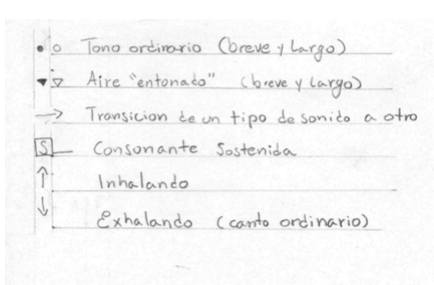 ● ○ Tono ordinario (breve y Largo)
▼ ▽ Aire "entonado" (breve y Largo)
→ Transicion de un tipo de sonido a otro
S Consonante Sostenida
↑ Inhalando
↓ Exhalando (canto ordinario)